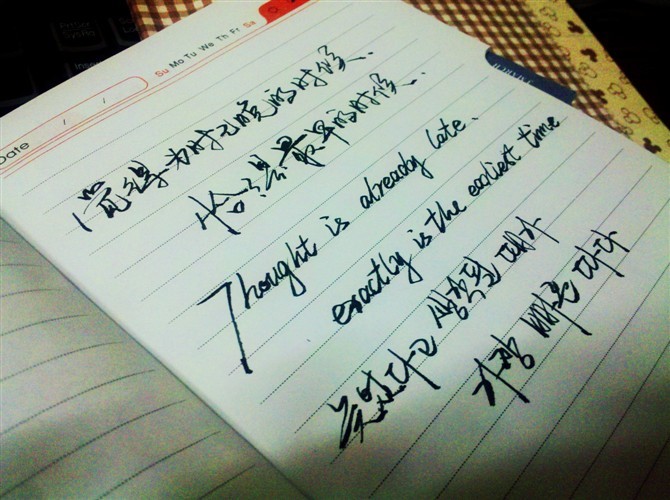 Date / /
Su Mo Tu We Th Fr Sa
觉得为时已晚的时候、
恰恰是最早的时候.
Thought is already late.
exactly is the earliest time
늦었다고 생각될 때가
가장 빠른